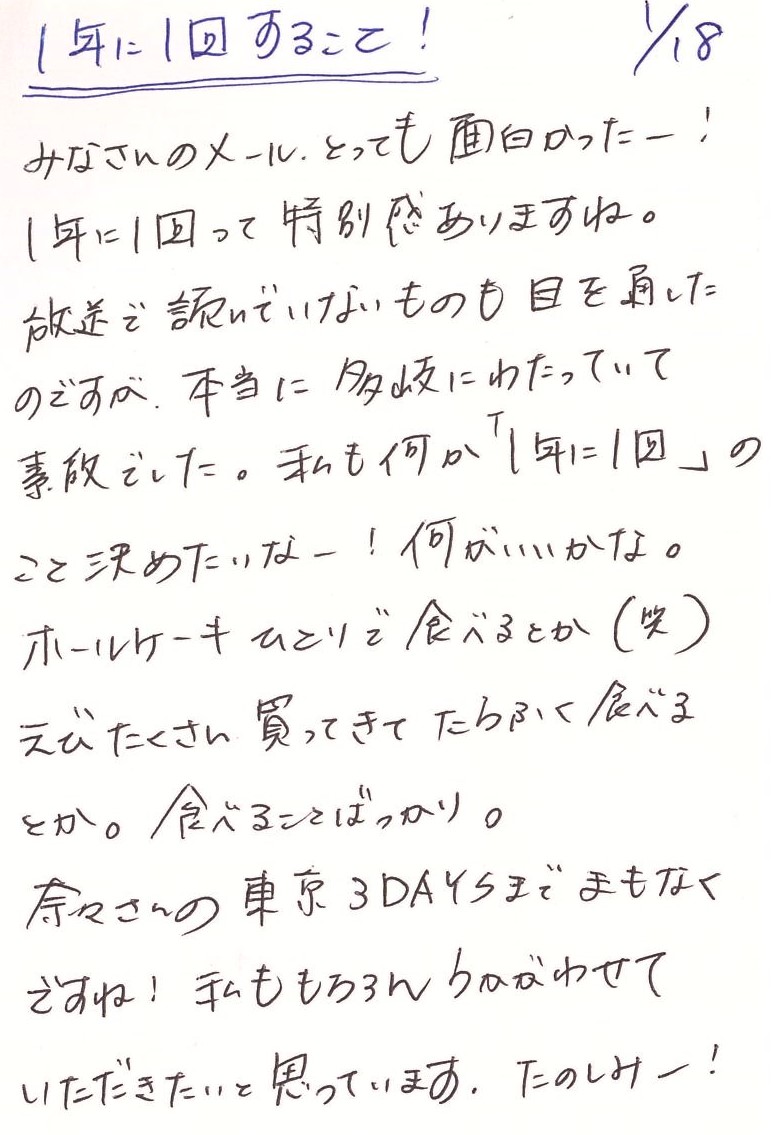 1年に1回すること! 1/18
みなさんのメール、とっても面白かったー!
1年に1回って特別感ありますね。
放送で読んでいないものも目を通した
のですが、本当に多岐にわたっていて
素敵でした。私も何か「1年に1回」の
こと決めたいなー!何がいいかな。
ホールケーキひとりで食べるとか(笑)
えびたくさん買ってきてたらふく食べる
とか。食べることばっかり。
奈々さんの東京3DAYSまでまもなく
ですね!私ももちろんうかがわせて
いただきたいと思っています。たのしみー!